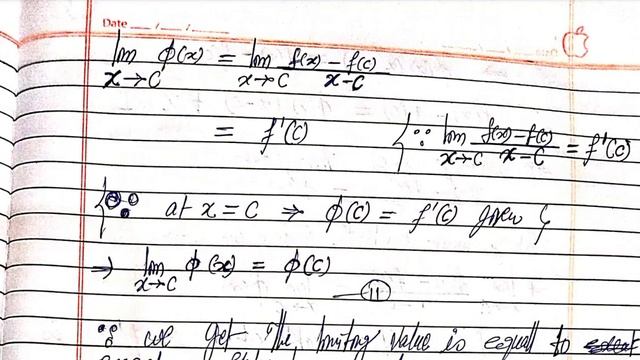 Date
lim x→c φ(x) = lim x→c f(x) - f(c) / x-c
= f'(c) { ∵ lim x→c f(x)-f(c) / x-c = f'(c)
{ ∵ at x = c ⇒ φ(c) = f'(c) given }
⇒ lim x→c φ(x) = φ(c)
—(11)
∴ we get the limiting value is equal to